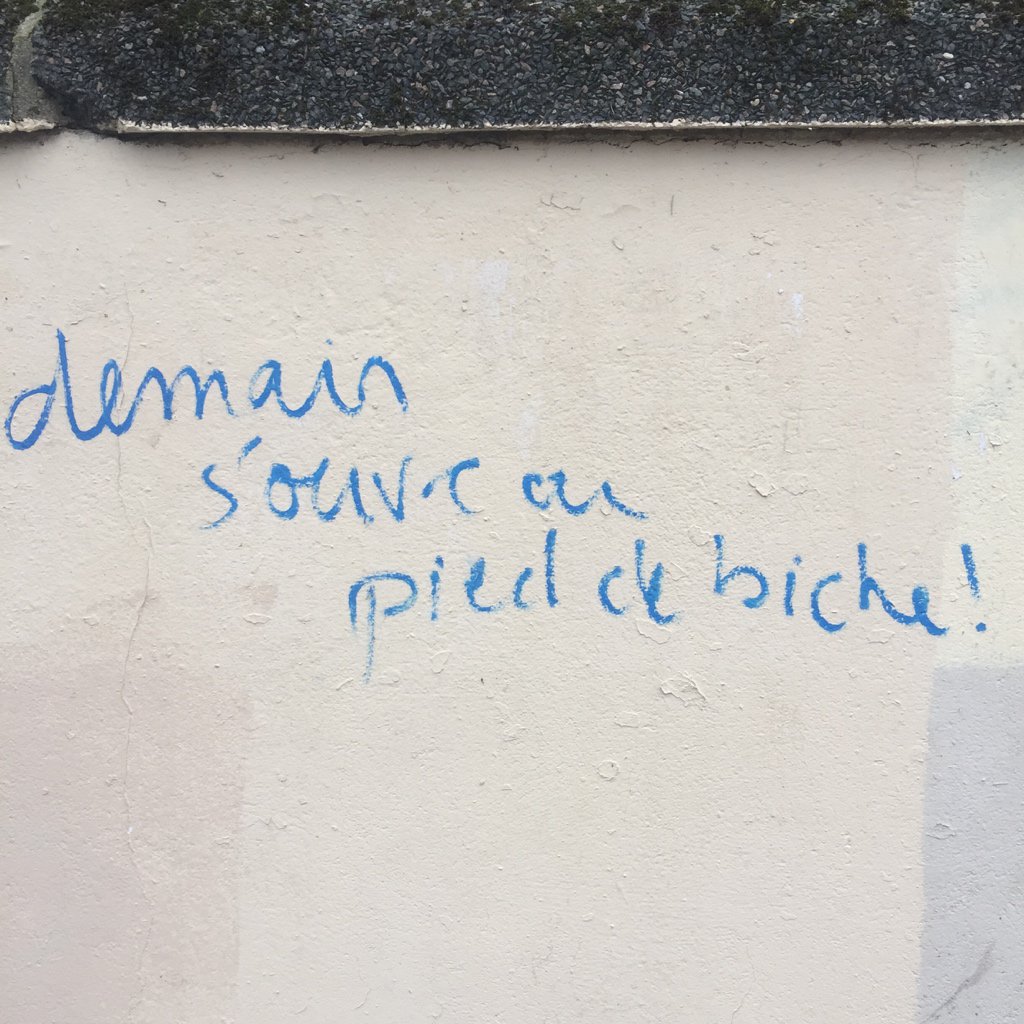 demain
s'ouvre au
pied de biche!